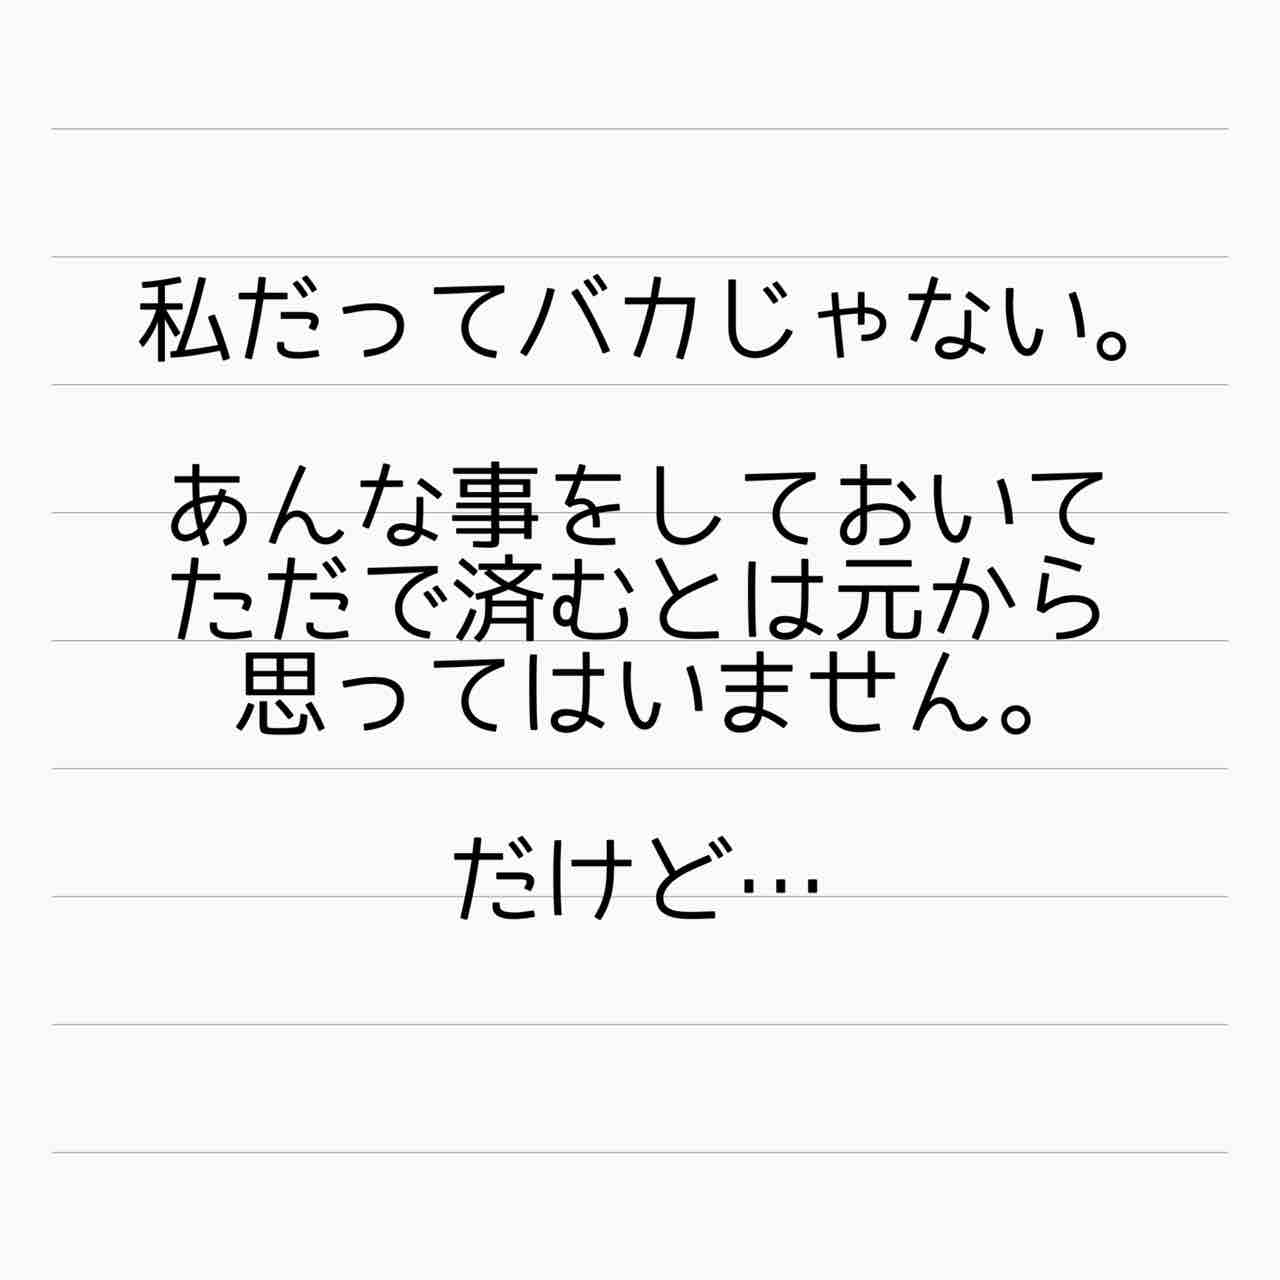 私だってバカじゃない。
あんな事をしておいて
ただで済むとは元から
思ってはいません。
だけど…